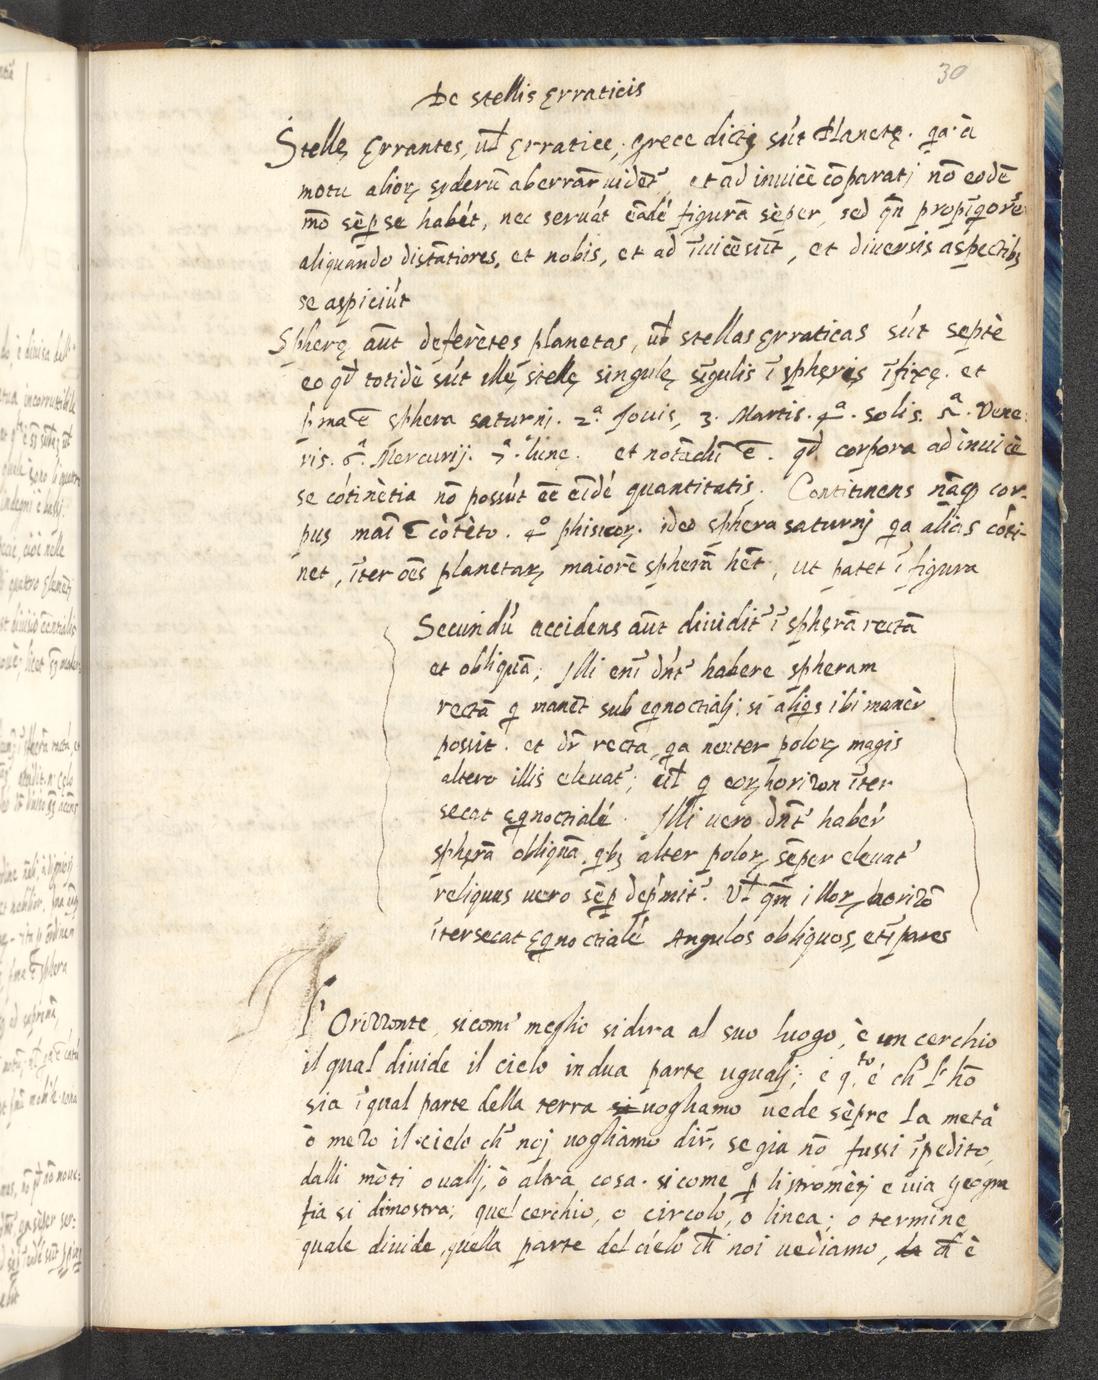 30
De stellis Erraticis
Stellę Errantes, ul̃ Erratice, grece dictę sũt Planetę. qa a
motu alioꝝ syderũ aberrar̃ uidẽt̃, et ad inuicẽ cõparatj nõ eodẽ
mõ sẽp se habẽt, nec seruãt eãdẽ figurã sẽper, sed qñ propĩqores
aliquando distãtiores, et nobis, et ad ĩuicẽ sũt, et diuersis aspectibꝫ
se aspiciũt
Spherę aũt deferẽtes planetas, ul̃ stellas Erraticas sũt septẽ
eo qđ totidẽ sũt illę stellę singulę sĩgulis ĩ spheris ĩfixę. et
pͥma ẽ sphera saturnj. 2ª. Jouis, 3. Martis. 4ª. Solis. 5ª. Vene:
ris. 6ª. Mercurij. 7ª. lunę. et notãdũ ẽ. qđ corpora ad inuicẽ
se cõtinẽtia nõ possũt eẽ eĩdẽ quantitatis. Contitinens nãqꝫ cor-
pus maĩ ẽ cõtẽto. 4º phisicoꝝ. ideo sphera saturnj qa alias cõti-
net, ĩter oẽs planetaꝝ maiorẽ spherã hẽt, ut patet ĩ figura
Secundũ accidens aũt diuidit̃ ĩ spherã rectã
et obliquã; Illi enĩ dñt̃ habere spheram
rectã q manẽt sub eqnoctialj; si aliqs ibi manẽr
possit. et dr̃ recta, qa neuter poloꝝ magis
altero illis eleuat̃; ul̃ q eoꝝ horizon ĩter
secat eqnoctialẽ. Illi uero dñt̃ haber̃
spherã obliquã, qbꝫ alter poloꝝ sẽper eleuat̃
reliquus uero sẽp depͥmit̃. Ul̃ qm̃ illoꝝ horizõ
ĩtersecat Eqnoctialẽ Angulos obliquos, et ĩpares
L' Orizzonte, si comͥ meglio si dira al suo luogo, è un cerchio
il qual diuide il cielo in dua parte ugualj; e q.to é ch' l' hõ
sia ĩ qual parte della terra si uogliamo uede sẽpre la metà
ò mezo il cielo ch' noj uogliamo dir̃, se gia nõ fussi ĩpedito,
dalli mõti o uallj, ò altra cosa. si come ꝑ li stromẽtj e uia geogra
fia si dimostra; quel cerchio, o circolo, o linea; o termine,
quale diuide, quella parte del cielo ch' noi uediamo, la ch' è